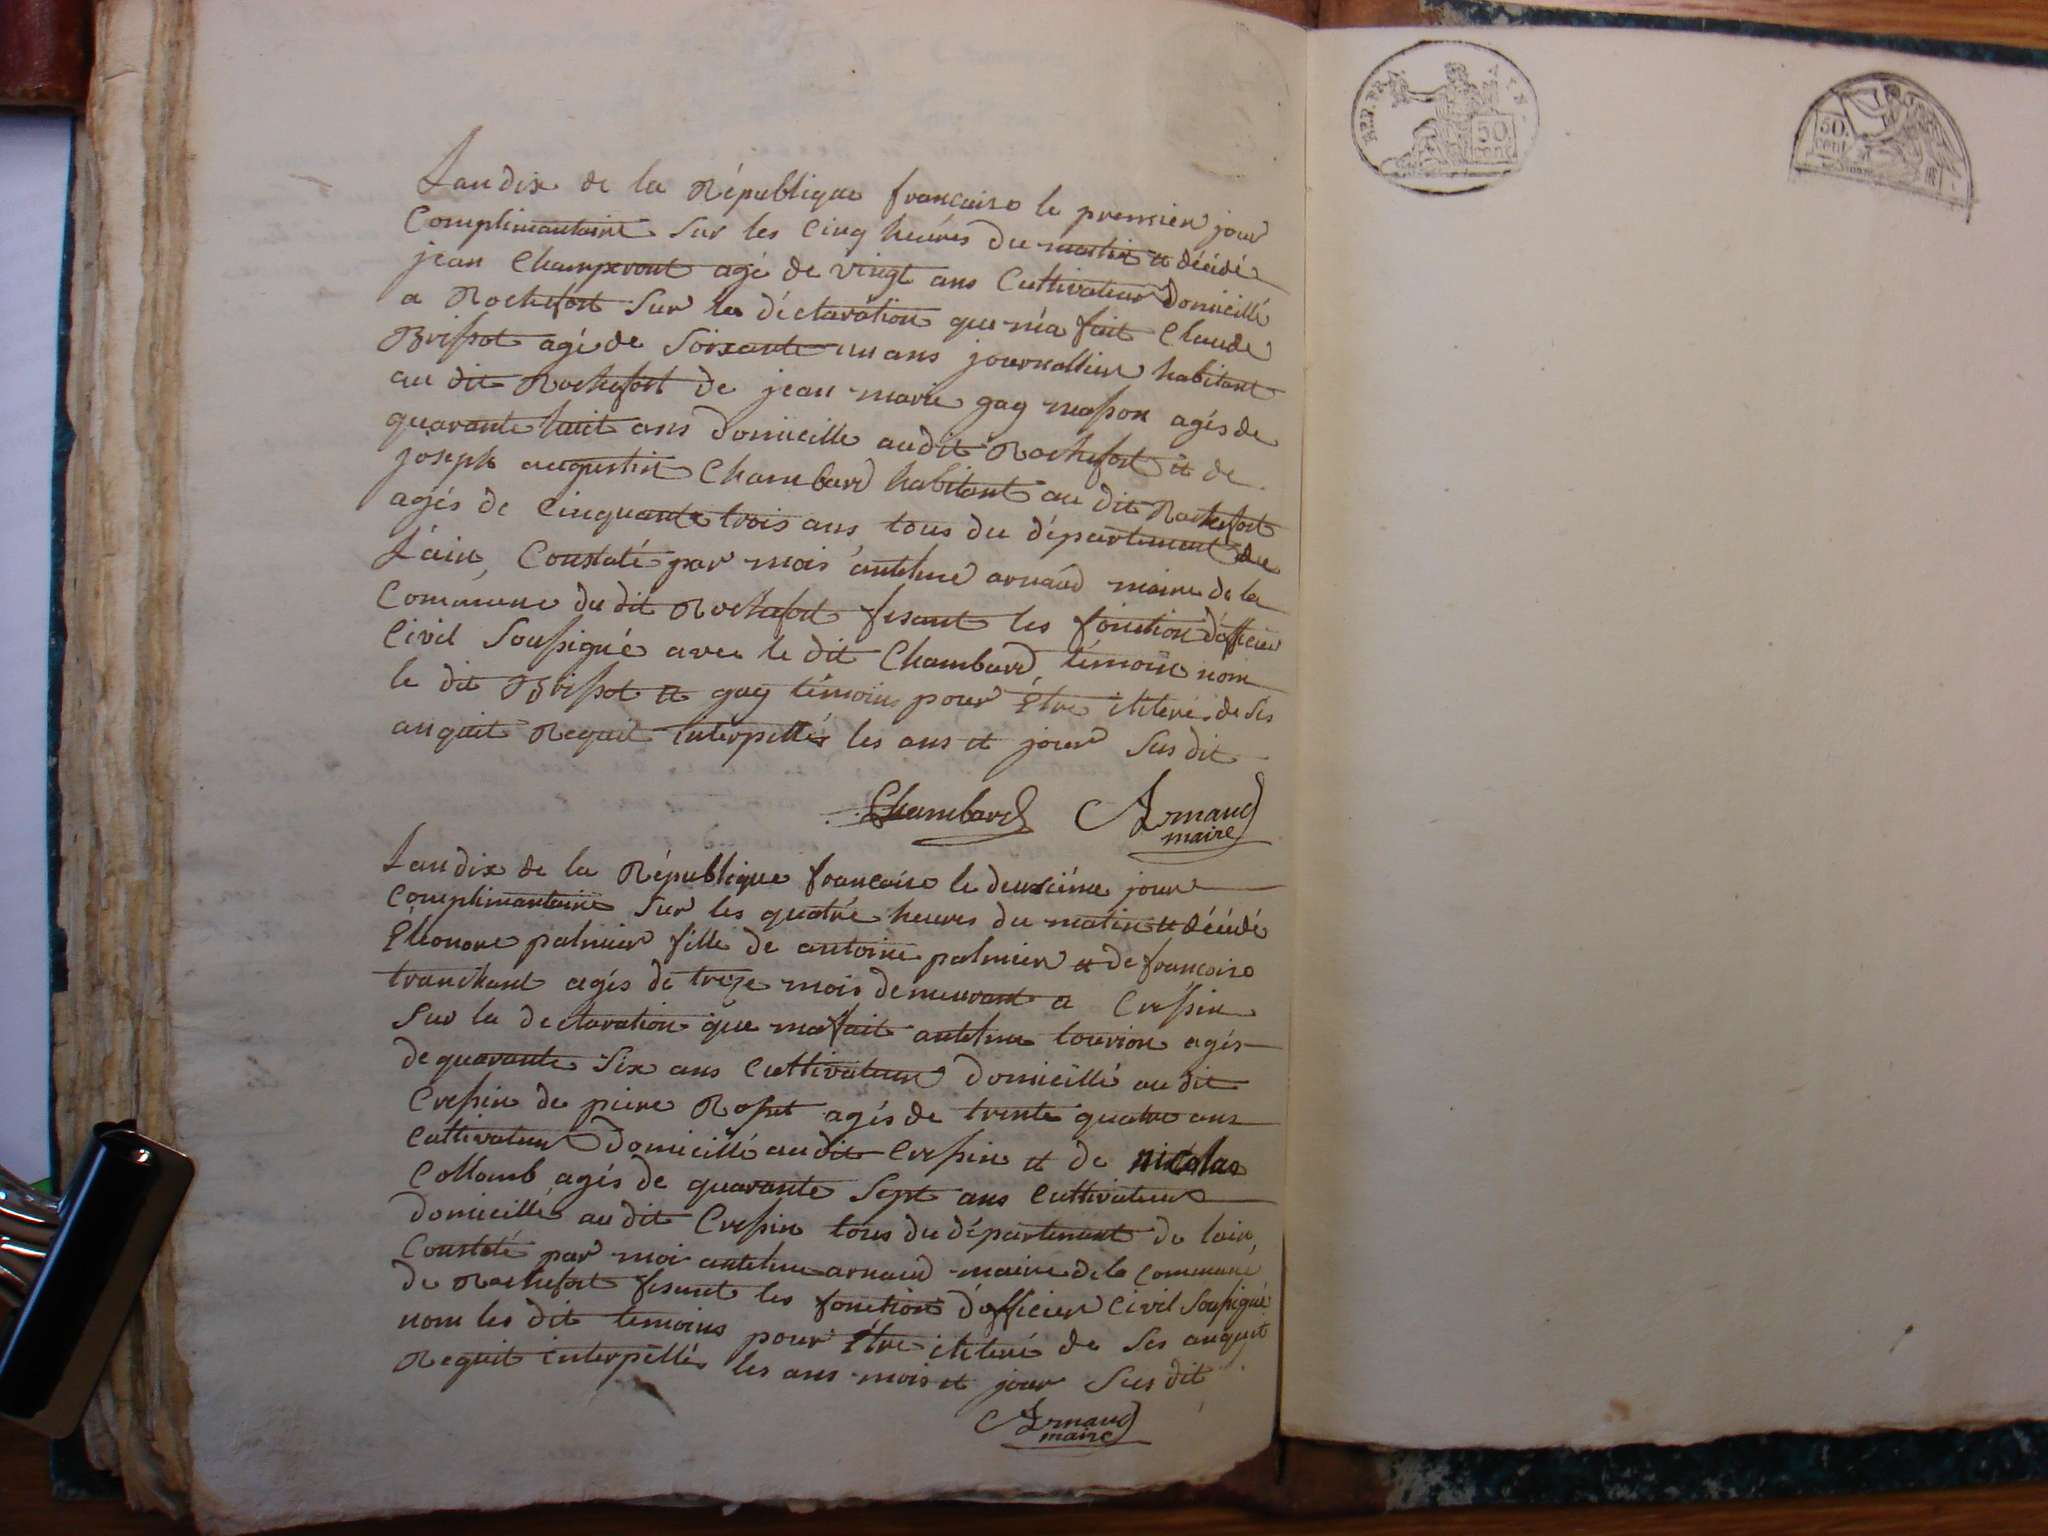 Lan dix de la République francaise le premier jour
Complimantaire Sur les Cinq heures du matin et décédé
jean Champront agé de vingt ans Cultivateur Domicillé
a Rochefort Sur la déclaration que m'a fait Claude
Brissot agé de Soixante un ans journallier habitant
au dit Rochefort de jean marie gay masson agés de
quarante huit ans Domicille audit Rochefort et de
joseph augustin Chambard habitant au dit Rochefort
agés de Cinquante trois ans tous du département de
L'ain, Constaté par mois antelme arnaud maire de la
Commune du dit Rochefort fesant les fonction d'officier
Civil Soussigné avec le dit Chambard, témoin nom
le dit Brissot et gay témoins pour être iliteré de Ses
anquit Requit interpellés les ans et jour Sus dit
Chambard Arnaud
maire
Lan dix de la République francaise le deuxiéme jour
Complimantaire Sur les quatre heures du matin et décédé
Eléonore palmier fille de antoine palmier et de francoise
tranchant agés de treze mois demeurant a Cressin
Sur la declaration que ma fait antelme tourion agés
de quarante Six ans Cultivateur domicillé au dit
Cressin de piere Rosset agés de trente quatre ans
Cultivateur Domicillé au dit Cressin et de nicolas
Collomb agés de quarante Sept ans Cultivateur
domicillé au dit Cressin tous du département de lain,
Constaté par moi antelme arnaud maire de la Commune
de Rochefort fesant les fonctions d'officier Civil Soussigné
nom les dit temoins pour être iliteré de Ses anquit
Requit interpellés les ans mois et jour Sus dit
Arnaud
maire
REP. FRA.
50
cent
50
cent